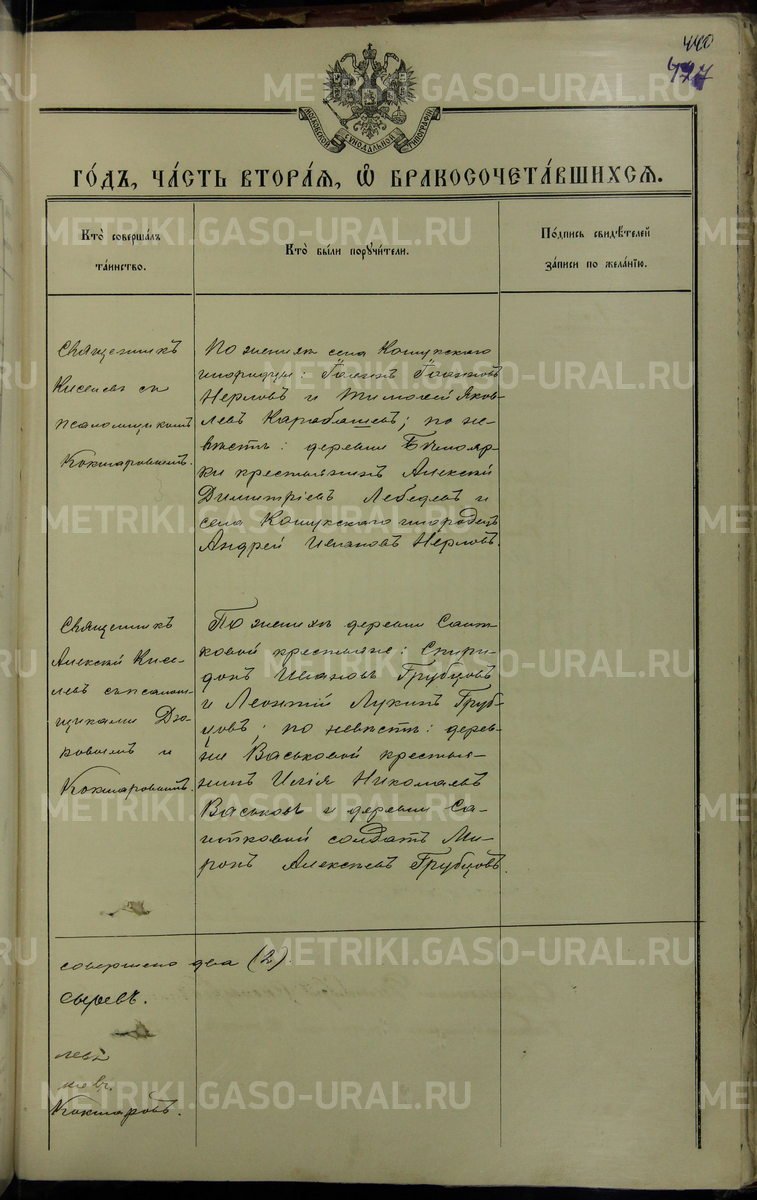 440
477
МОСКОВСКОЙ СѴНОДАЛЬНОЙ ТИПОГРАФІИ
ГО́ДЪ, ЧА́СТЬ ВТОРА́Я, Ѡ҆ БРАКОСОЧЕТА́ВШИХСЯ.
Кто̀ совершалъ
та́инство.
Кто̀ бы́ли поручи́тели.
По́дпись свидѣ́телей
за́писи по жела́нію.
Священникъ
Киселевъ съ
псаломщикомъ
Кокшаровымъ.
По женихѣ села Кошукскаго
инородцы: Іоаннъ Іоанновъ
Нерловъ и Тимофей Яков-
левъ Карабашевъ; по не-
вѣстѣ: деревни
ки крестьянинъ Алексѣй
Димитріевъ Лебедевъ и
села Кошукскаго инородецъ
Андрей Ивановъ Нерловъ.
Священникъ
Алексѣй Кисе-
левъ съ псалом-
щиками
и
Кокшаровымъ.
По женихѣ деревни Саит-
ковой крестьяне: Спири-
донъ Ивановъ Грубцовъ
и Леонтій Лукинъ Груб-
цовъ; по невѣстѣ: дерев-
ни Васьковой крестья-
нинъ Илія Николаевъ
Васьковъ и деревни Са-
итковой солдатъ Ми-
ронъ Алексѣевъ Грубцовъ.
совершено два (2).
сыревъ.
левъ
Кокшаровъ.
METRIKI.GASO-URAL.RU